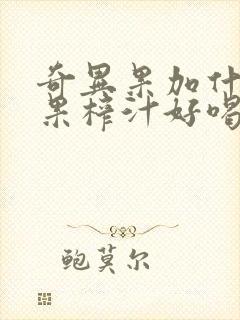 奇異果加什
果榨汁好喝
鲍莫尔